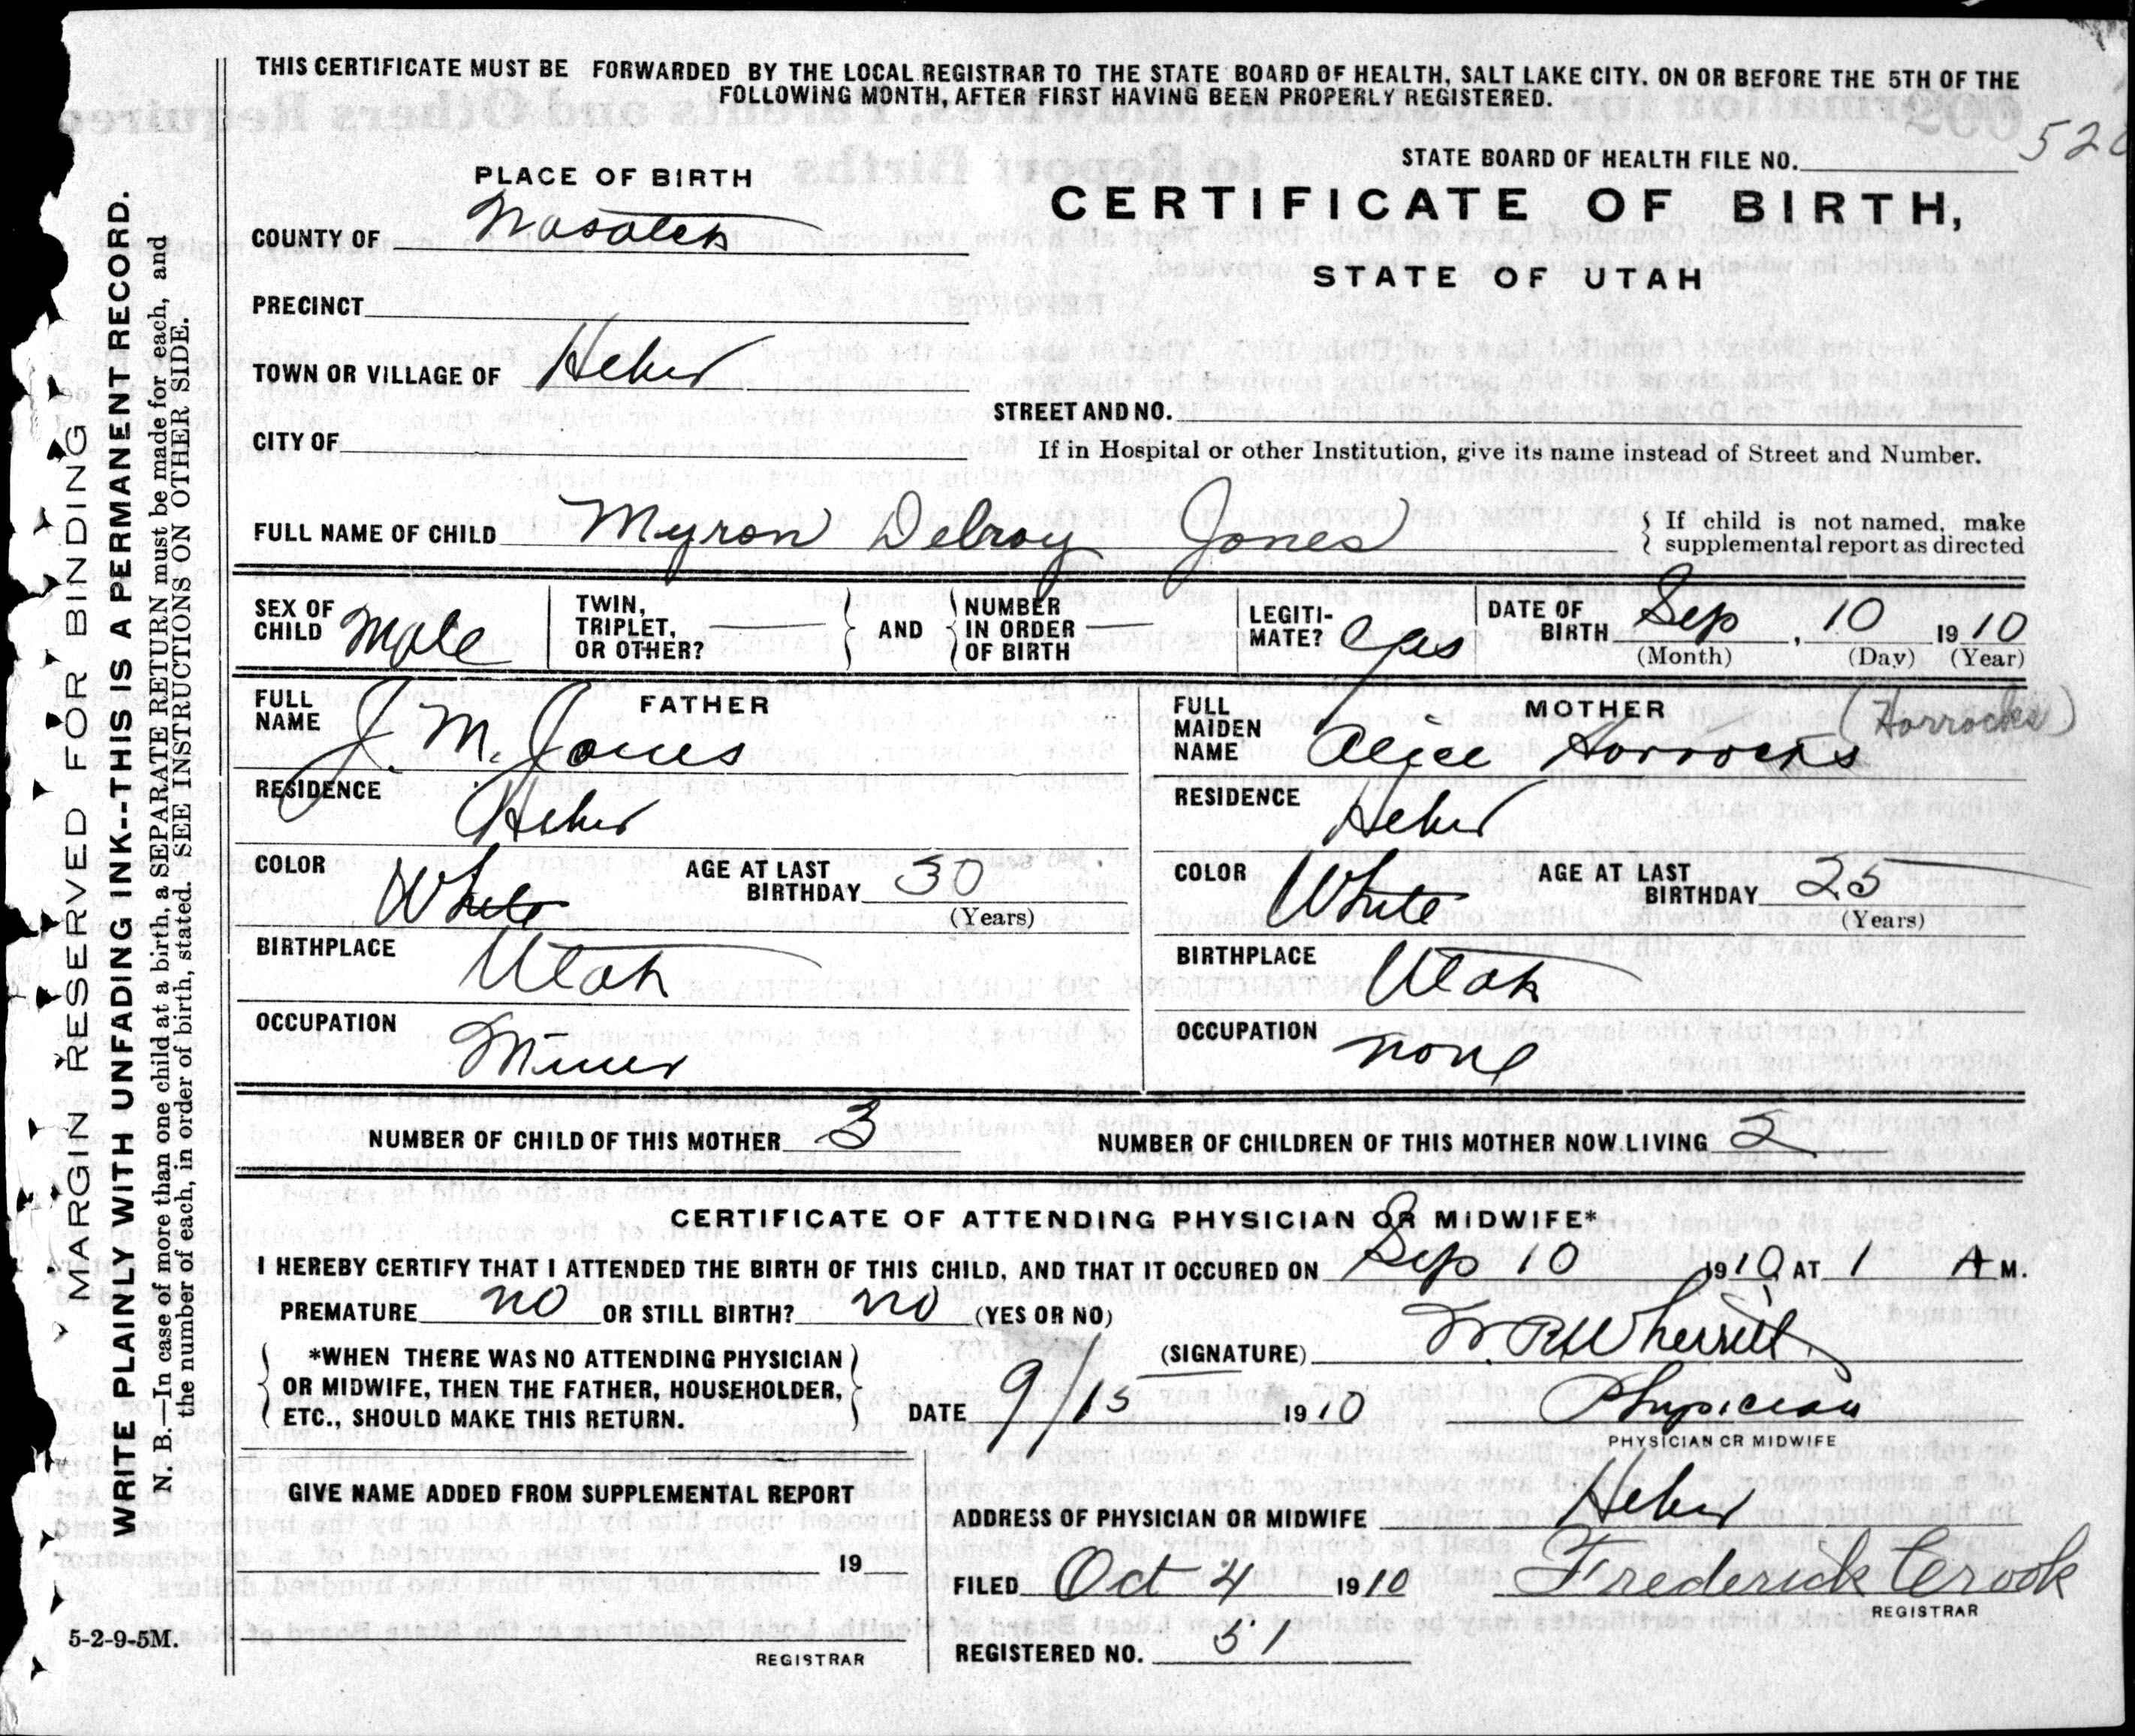 THIS CERTIFICATE MUST BE FORWARDED BY THE LOCAL REGISTRAR TO THE STATE BOARD OF HEALTH, SALT LAKE CITY, ON OR BEFORE THE 5TH OF THE
FOLLOWING MONTH, AFTER FIRST HAVING BEEN PROPERLY REGISTERED.
STATE BOARD OF HEALTH FILE NO.
PLACE OF BIRTH
CERTIFICATE OF BIRTH,
STATE OF UTAH
COUNTY OF Wasatch
PRECINCT
TOWN OR VILLAGE OF Heber
STREET AND NO.
CITY OF
If in Hospital or other Institution, give its name instead of Street and Number.
FULL NAME OF CHILD Myron Delroy Jones
If child is not named, make
supplemental report as directed
SEX OF CHILD Male
TWIN, TRIPLET, OR OTHER?
AND
NUMBER IN ORDER OF BIRTH
LEGITI-MATE? Yes
DATE OF BIRTH Sep, 10 1910
(Month) (Day) (Year)
FATHER
FULL NAME J. M. Jones
RESIDENCE Heber
COLOR White
AGE AT LAST BIRTHDAY 30
(Years)
BIRTHPLACE Utah
OCCUPATION Miner
MOTHER (Horrocks)
FULL MAIDEN NAME Alice Horrocks
RESIDENCE Heber
COLOR White
AGE AT LAST BIRTHDAY 25
(Years)
BIRTHPLACE Utah
OCCUPATION none
NUMBER OF CHILD OF THIS MOTHER 3
NUMBER OF CHILDREN OF THIS MOTHER NOW LIVING 2
CERTIFICATE OF ATTENDING PHYSICIAN OR MIDWIFE*
I HEREBY CERTIFY THAT I ATTENDED THE BIRTH OF THIS CHILD, AND THAT IT OCCURED ON Sep 10 1910, AT 1 A M.
PREMATURE no OR STILL BIRTH? no (YES OR NO)
*WHEN THERE WAS NO ATTENDING PHYSICIAN
OR MIDWIFE, THEN THE FATHER, HOUSEHOLDER,
ETC., SHOULD MAKE THIS RETURN.
(SIGNATURE) Wherritt
DATE 9/15 1910
Physician
PHYSICIAN OR MIDWIFE
GIVE NAME ADDED FROM SUPPLEMENTAL REPORT
19
REGISTRAR
ADDRESS OF PHYSICIAN OR MIDWIFE Heber
FILED Oct 4 1910 Frederick Crook
REGISTRAR
REGISTERED NO. 51
5-2-9-5M.
MARGIN RESERVED FOR BINDING
WRITE PLAINLY WITH UNFADING INK--THIS IS A PERMANENT RECORD.
N. B.—In case of more than one child at a birth, a SEPARATE RETURN must be made for each, and
the number of each, in order of birth, stated. SEE INSTRUCTIONS ON OTHER SIDE.